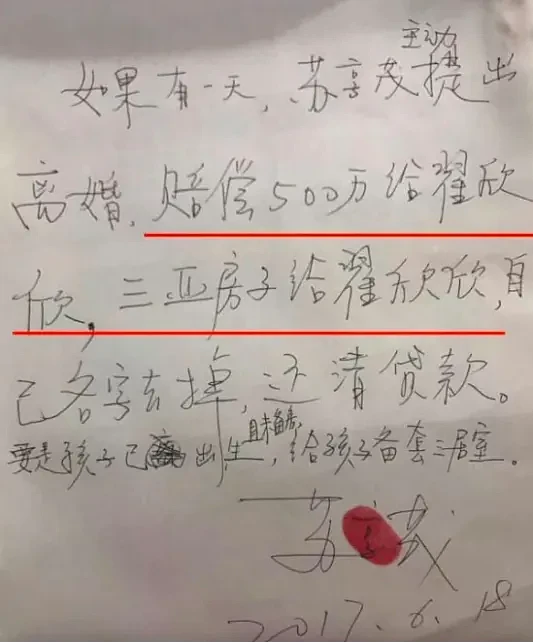 主动
如果有一天，苏享茂提出
离婚，赔偿500万给翟欣
欣，三亚房子给翟欣欣，自
己名字去掉，还清贷款。
且未备房，
要是孩子已出生，给孩子备套三居室。
苏享茂
2017.6.18